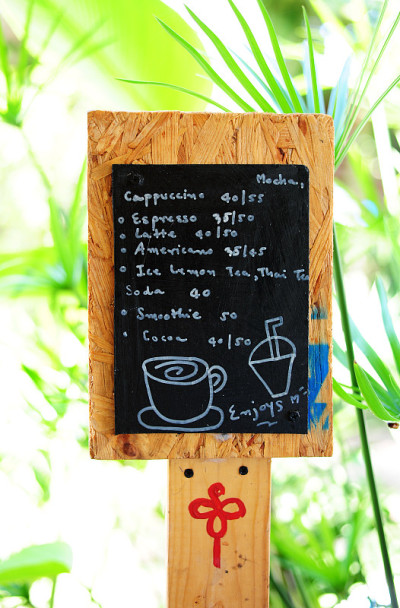 Mocha,
Cappuccino 40/55
• Espresso 35/50
• Latte 40/50
• Americano 35/45
• Ice Lemon Tea, Thai Te
Soda 40
• Smoothie 50
• Cocoa 40/50
Enjoys